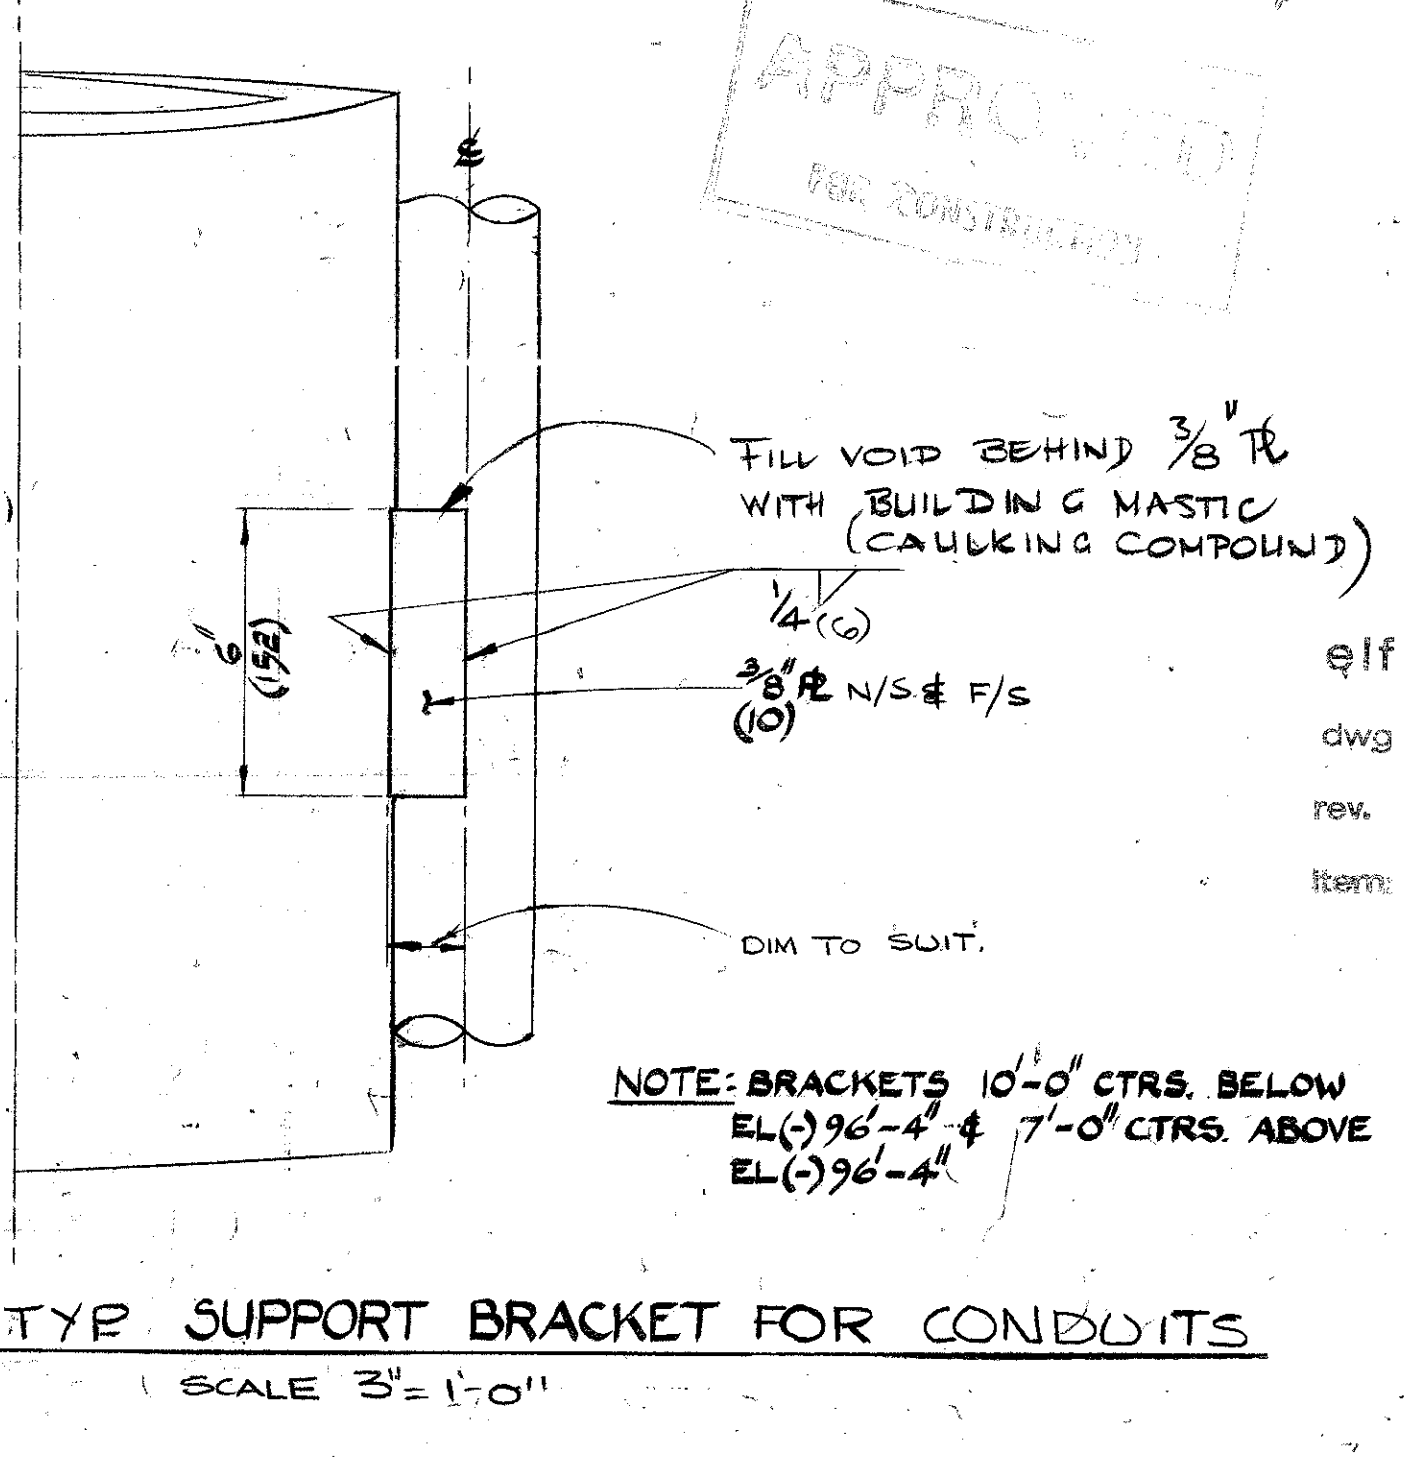 APPROVED
FOR CONSTRUCTION
℄
FILL VOID BEHIND 3/8" ℄
WITH BUILDING MASTIC
(CAULKING COMPOUND)
1/4 (6)
6"
(152)
3/8" ℄ N/S & F/S
(10)
elf
dwg
rev.
item:
DIM TO SUIT.
NOTE: BRACKETS 10'-0" CTRS. BELOW
EL(-)96'-4" & 7'-0" CTRS. ABOVE
EL(-)96'-4"
TYP SUPPORT BRACKET FOR CONDUITS
SCALE 3"= 1'-0"